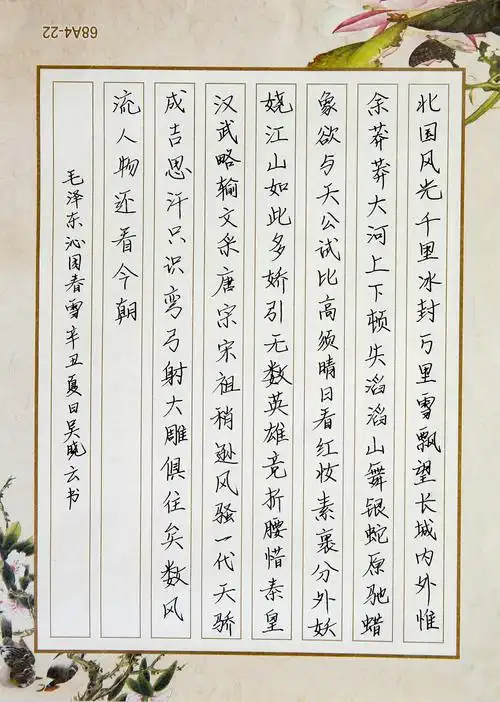 北国风光千里冰封万里雪飘望长城内外惟
余莽莽大河上下顿失滔滔山舞银蛇原驰蜡
象欲与天公试比高须晴日看红妆素裹分外妖
娆江山如此多娇引无数英雄竞折腰惜秦皇
汉武略输文采唐宗宋祖稍逊风骚一代天骄
成吉思汗只识弯弓射大雕俱往矣数风
流人物还看今朝
毛泽东沁园春雪辛丑夏日吴晓云书
68A4-22